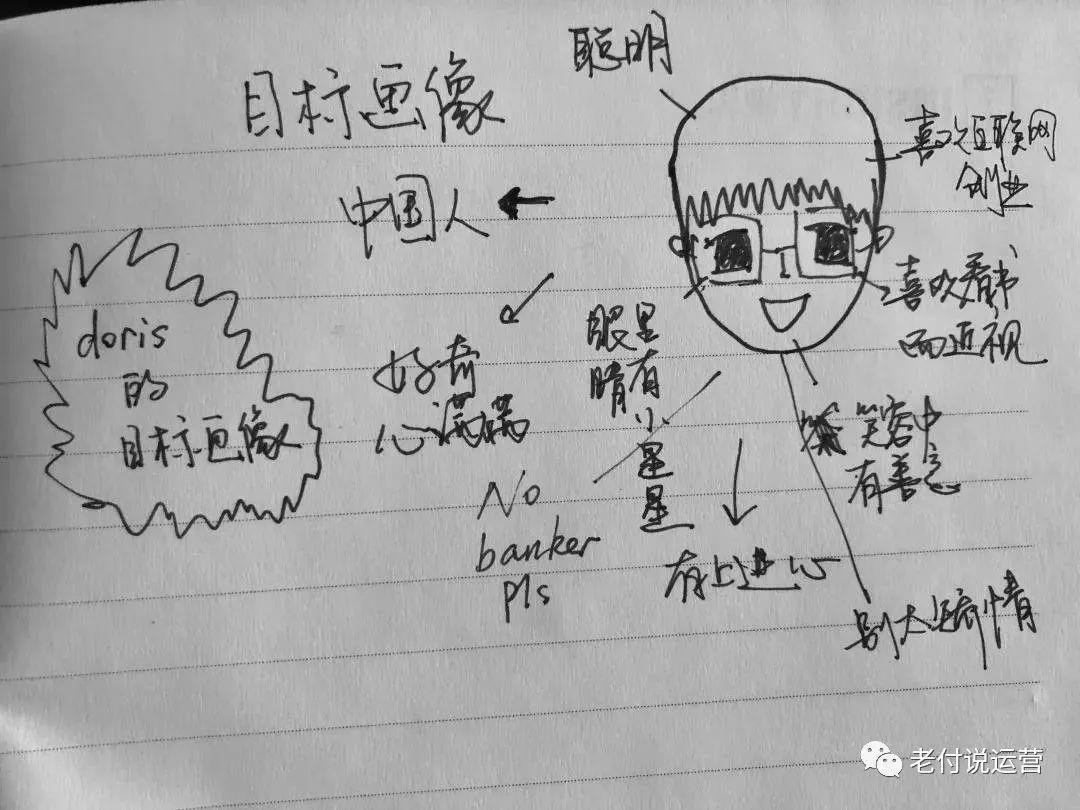 目标画像
聪明
喜欢互联网
创业
中国人
喜欢看书
而近视
doris
的
目标画像
好奇
心满满
眼里
睛有
小
星
星
笑容中
有善意
No
banker
pls
有上进心
别太矫情
老付说运营